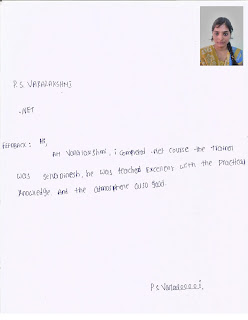 P.S. VARALAKSHMI
.NET
FEEDBACK: Hi,
am Varalakshmi, i completed .net course the trainer
was he was teached excellent with the practical
knowledge. and the atmosphere also good.